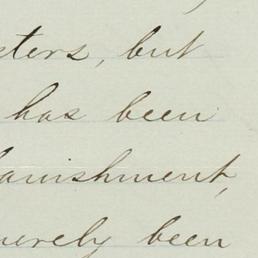 sters, but
has been
banishment,
merely been